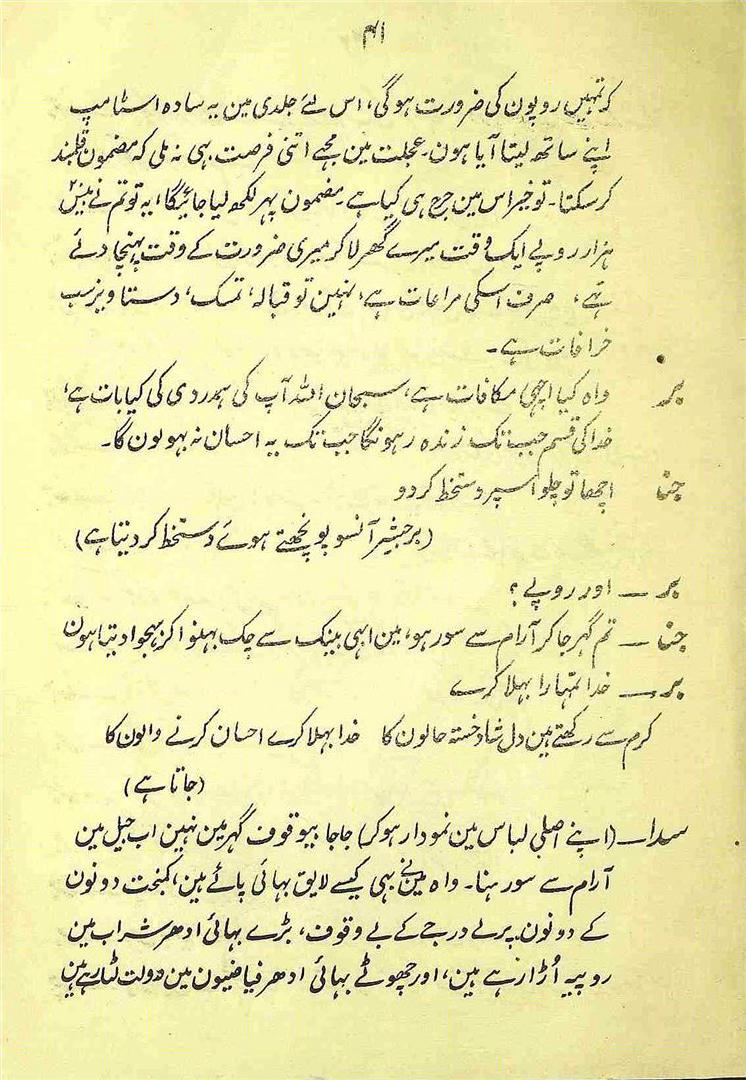 ۴۱
کہ تمہیں روپون کی ضرورت ہوگی، اس لئے جلدی مین یہ سادہ اسٹامپ
اپنے ساتھ لیتا آیا ہون۔ عجلت مین مجھے اتنی فرصت بہی نہ ملی کہ مضمون قلمبند
کرسکتا۔ تو خیر اس مین حرج ہی کیا ہے۔ مضمون پہر لکھ لیا جائیگا، یہ تو تم نے بیس۲۰
ہزار روپے ایک وقت میرے گھر لاکر میری ضرورت کے وقت پہنچا دئے
تہے، صرف اسکی مراعات ہے، نہین تو قبالہ، تمسک، دستاویز سب
خرافات ہے۔
بر واہ کیا اچہی مکافات ہے، سبحان اللہ آپ کی ہمدردی کی کیا بات ہے،
خدا کی قسم جب تک زندہ رہونگا جب تک یہ احسان نہ بہولون گا۔
جنا اچھا تو چلو اسپر دستخط کردو
(برجیشر آنسو پونچھتے ہوئے دستخط کردیتا ہے)
بر — اور روپے؟
جنا — تم گہر جاکر آرام سے سور ہو، مین ابہی بینک سے چک بہنوا کر بہجوا دیتا ہون
بر — خدا تمہارا بہلا کرے
کرم سے رکھتے ہین دل شاد خستہ حالون کا خدا بہلا کرے احسان کرنے والون کا
(جاتا ہے)
سدا — (اپنے اصلی لباس مین نمودار ہوکر) جا جا بیوقوف گہر مین نہین اب جیل مین
آرام سے سور ہنا۔ واہ مین نے بہی کیسے لایق بہائی پائے ہین، کمبخت دونون
کے دونون پرلے درجے کے بے وقوف، بڑے بہائی ادھر شراب مین
روپیہ اُڑا رہے ہین، اور چھوٹے بہائی ادھر فیاضیون مین دولت لٹا رہے ہین